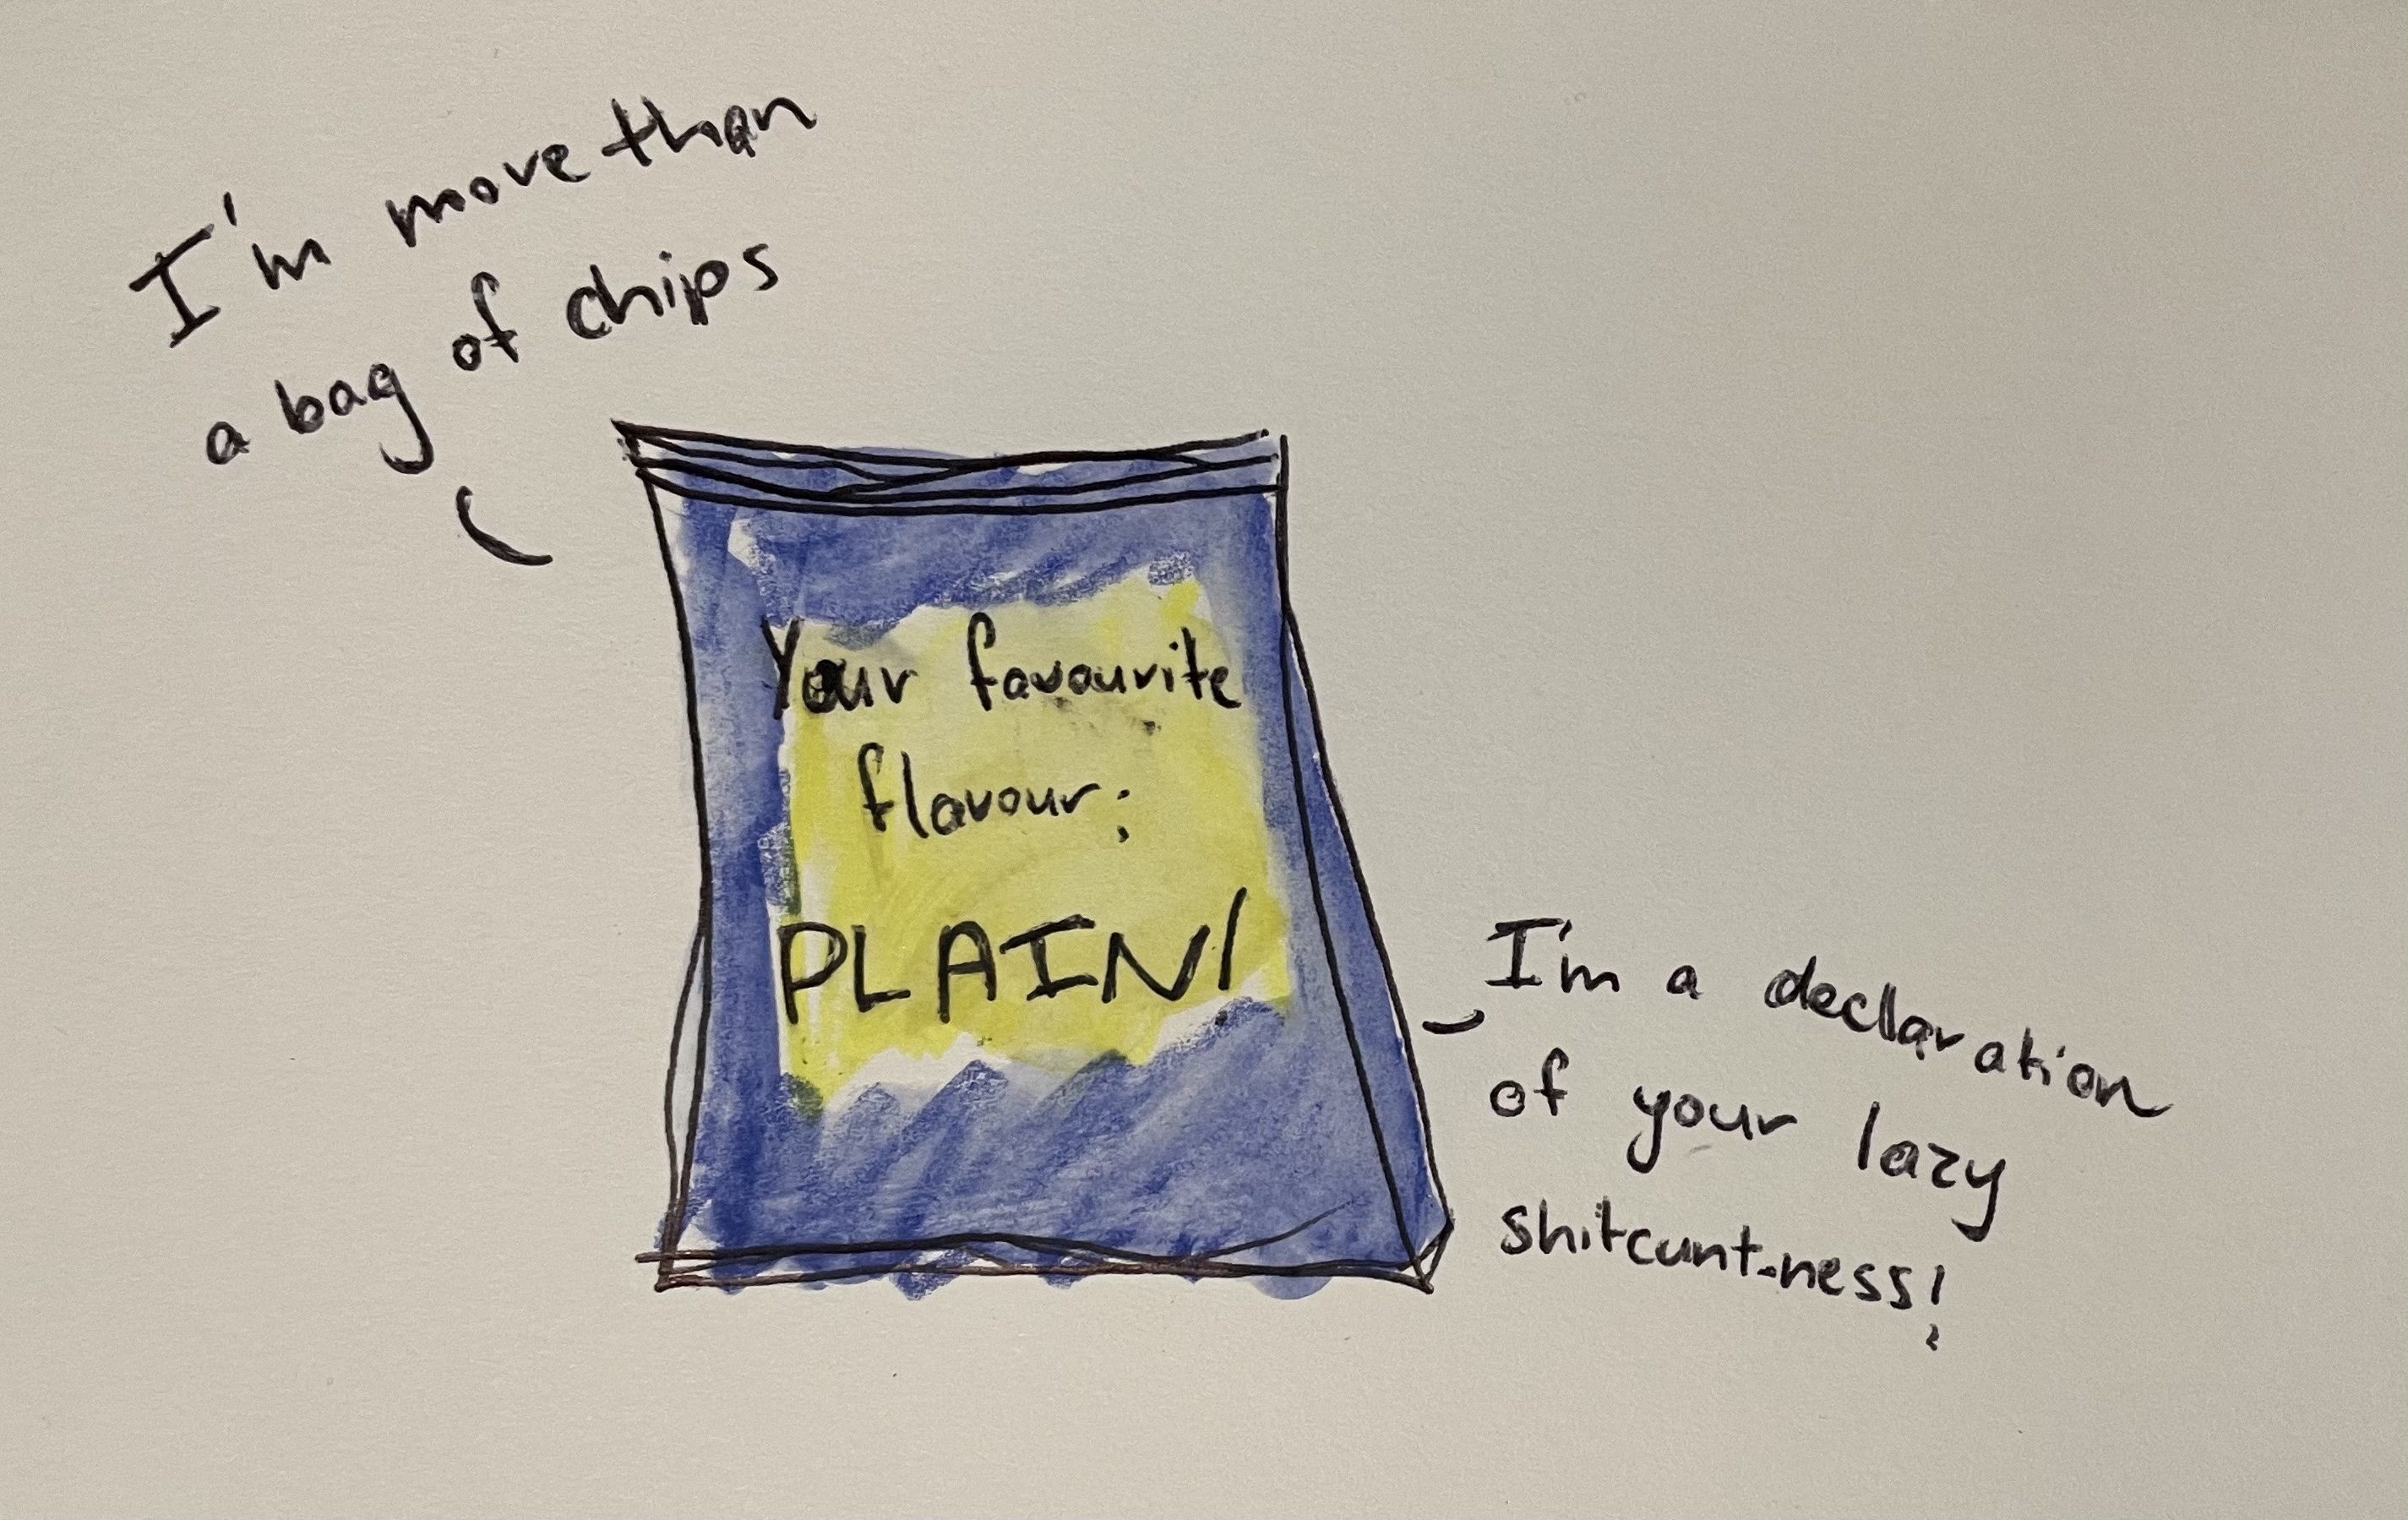 I'm more than
a bag of chips
Your favourite
flavour:
PLAIN!
I'm a declaration
of your lazy
shitcunt-ness!